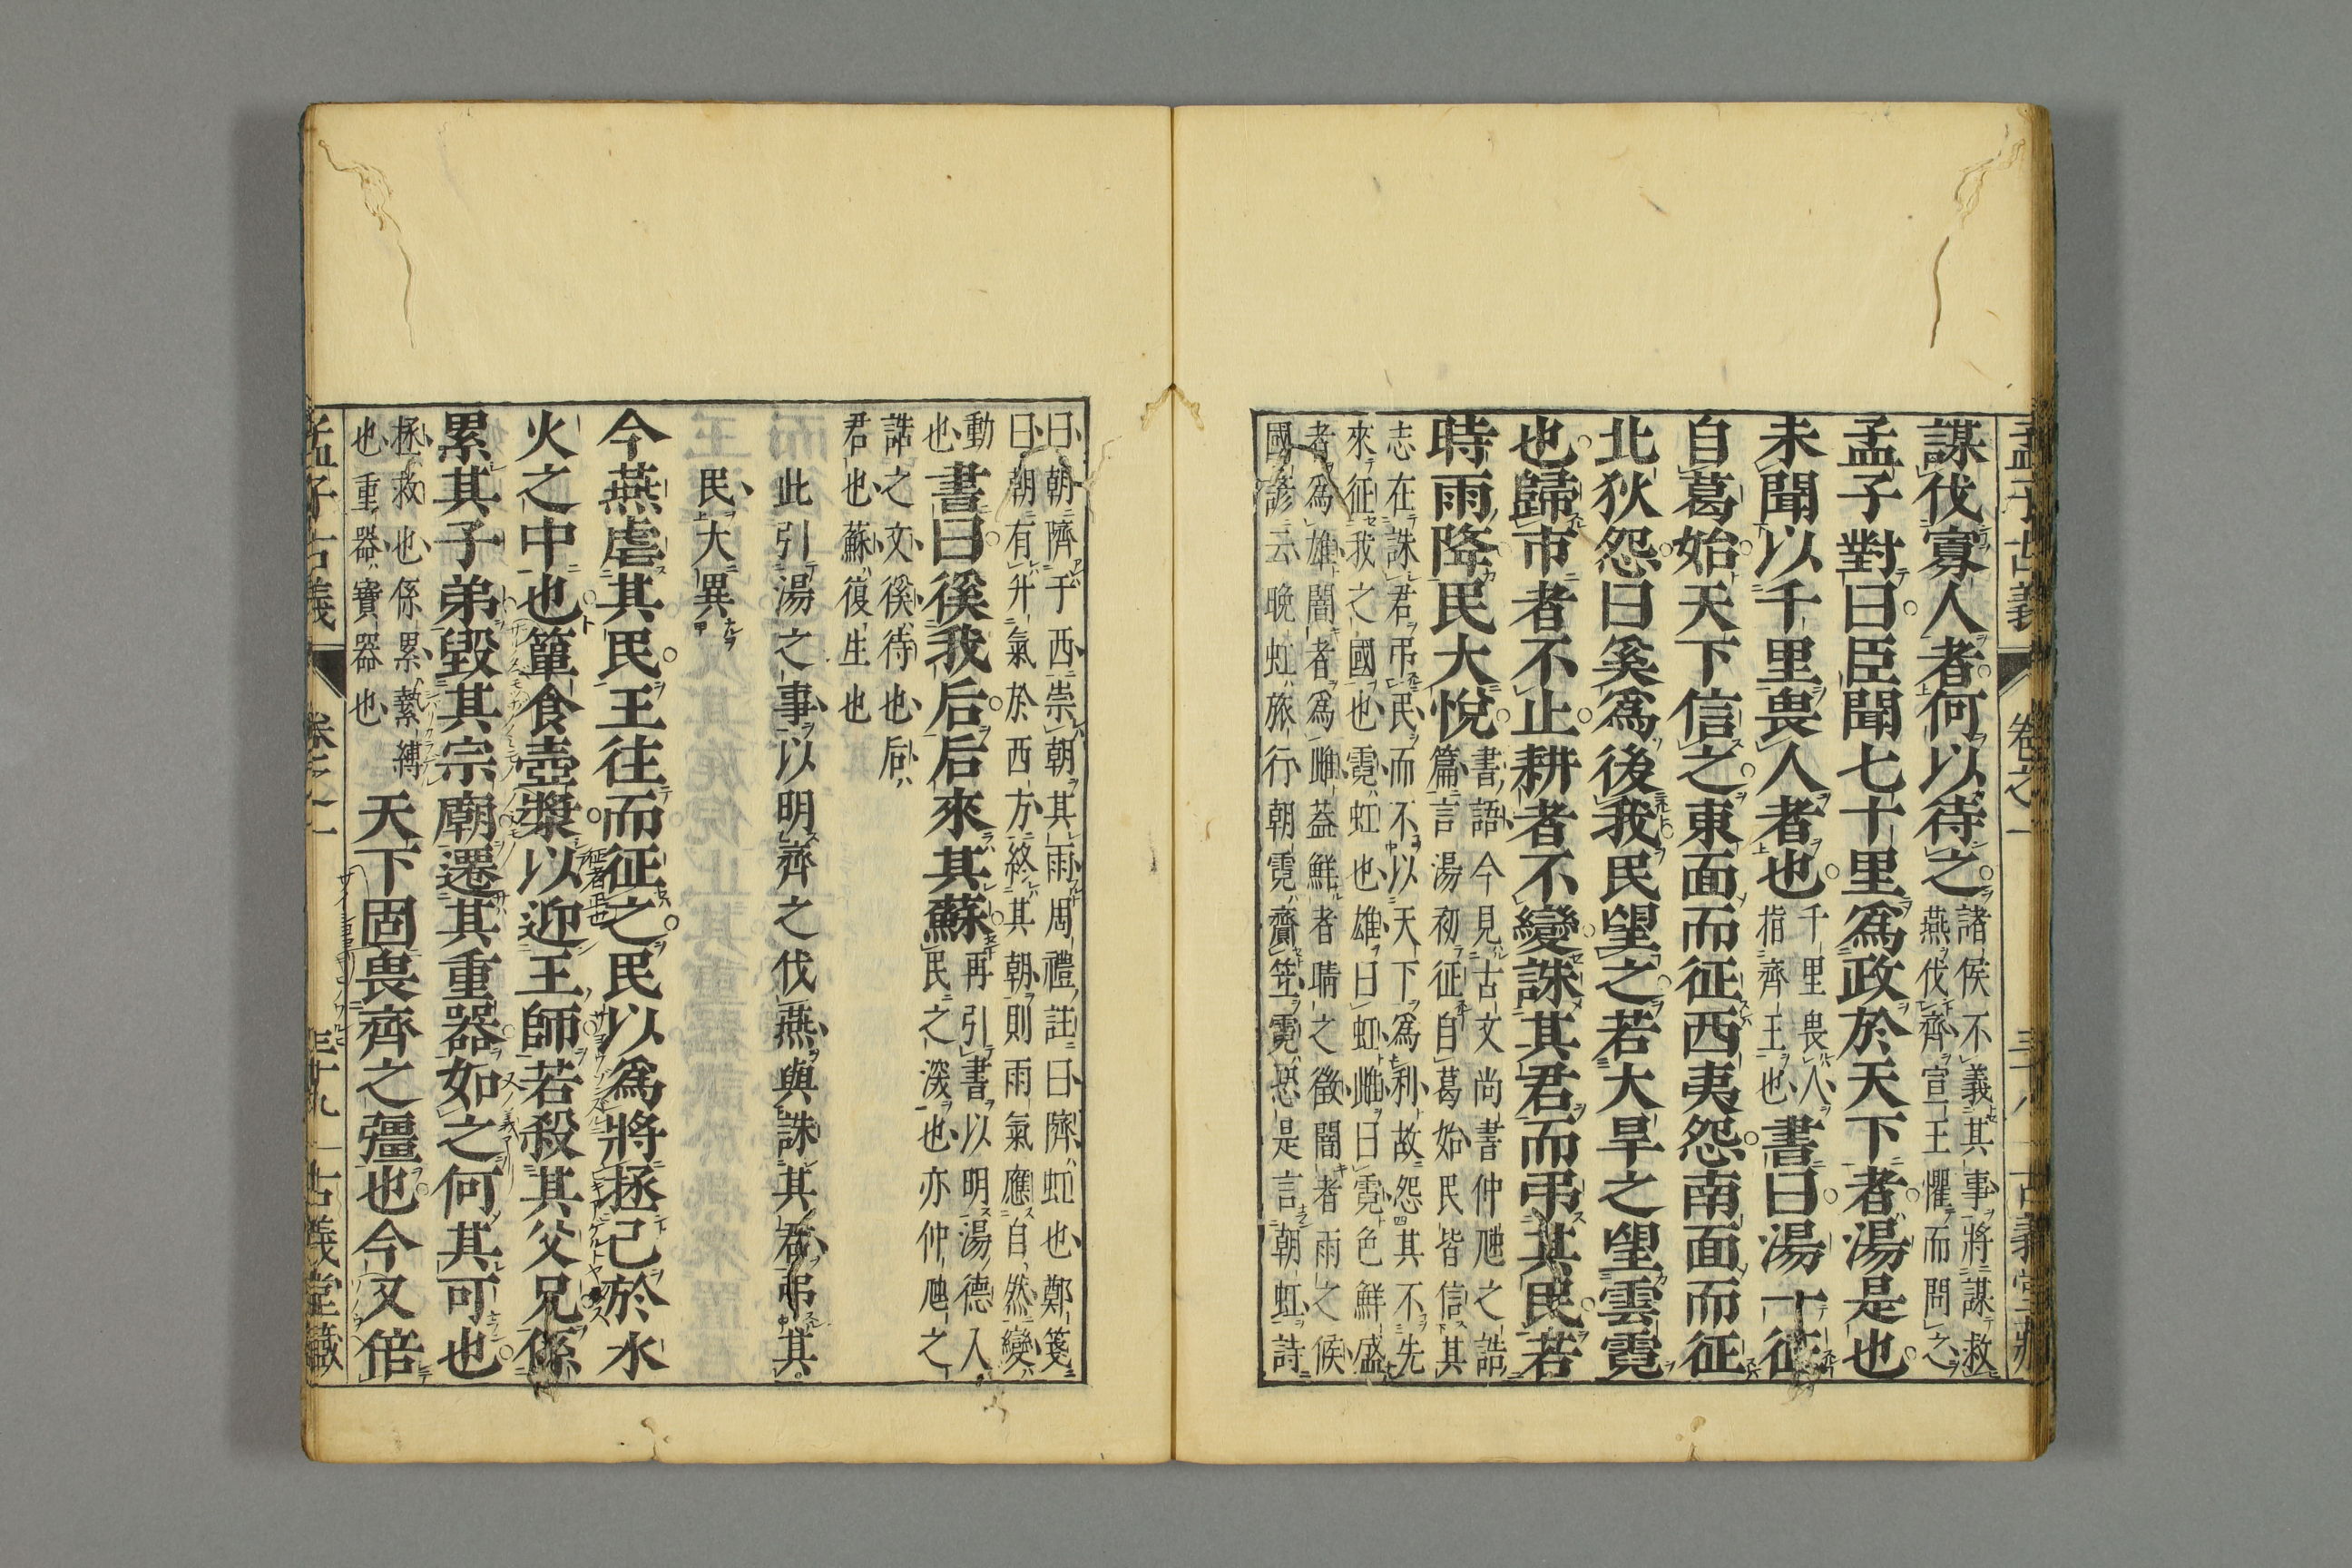 孟子古義 卷之一 三十八 古義堂藏
謀伐寡人者何以待之 諸侯不義其事將謀救
燕伐齊宣王懼而問之
孟子對曰臣聞七十里爲政於天下者湯是也
未聞以千里畏人者也 千里畏人
指齊王也 書曰湯一征
自葛始天下信之東面而征西夷怨南面而征
北狄怨曰奚爲後我民望之若大旱之望雲霓
也歸市者不止耕者不變誅其君而弔其民若
時雨降民大悅 書語今見古文尚書仲虺之誥
篇言湯初征自葛始民皆信其
志在誅君弔民而不以天下爲利故怨其不先
來征我之國也霓虹也雄曰虹雌曰霓色鮮盛
者爲雄闇者爲雌蓋鮮者晴之徵闇者雨之候
國諺云晩虹旅行朝霓齎笠霓恐是言朝虹詩
曰朝隮于西崇朝其雨周禮註曰隮虹也鄭箋
曰朝有升氣於西方終其朝則雨氣應自然變
動
也 書曰徯我后后來其蘇 再引書以明湯德入
民之深也亦仲虺之
誥之文徯待也后
君也蘇復生也
此引湯之事以明齊之伐燕與誅其君弔其
民大異
今燕虐其民王往而征之民以爲將拯己於水
征者正也
火之中也簞食壺漿以迎王師若殺其父兄係
累其子弟毀其宗廟遷其重器如之何其可也
拯救也係累縶縛
也重器寶器也 天下固畏齊之彊也今又倍
孟子古義 卷之一 三十九 古義堂藏